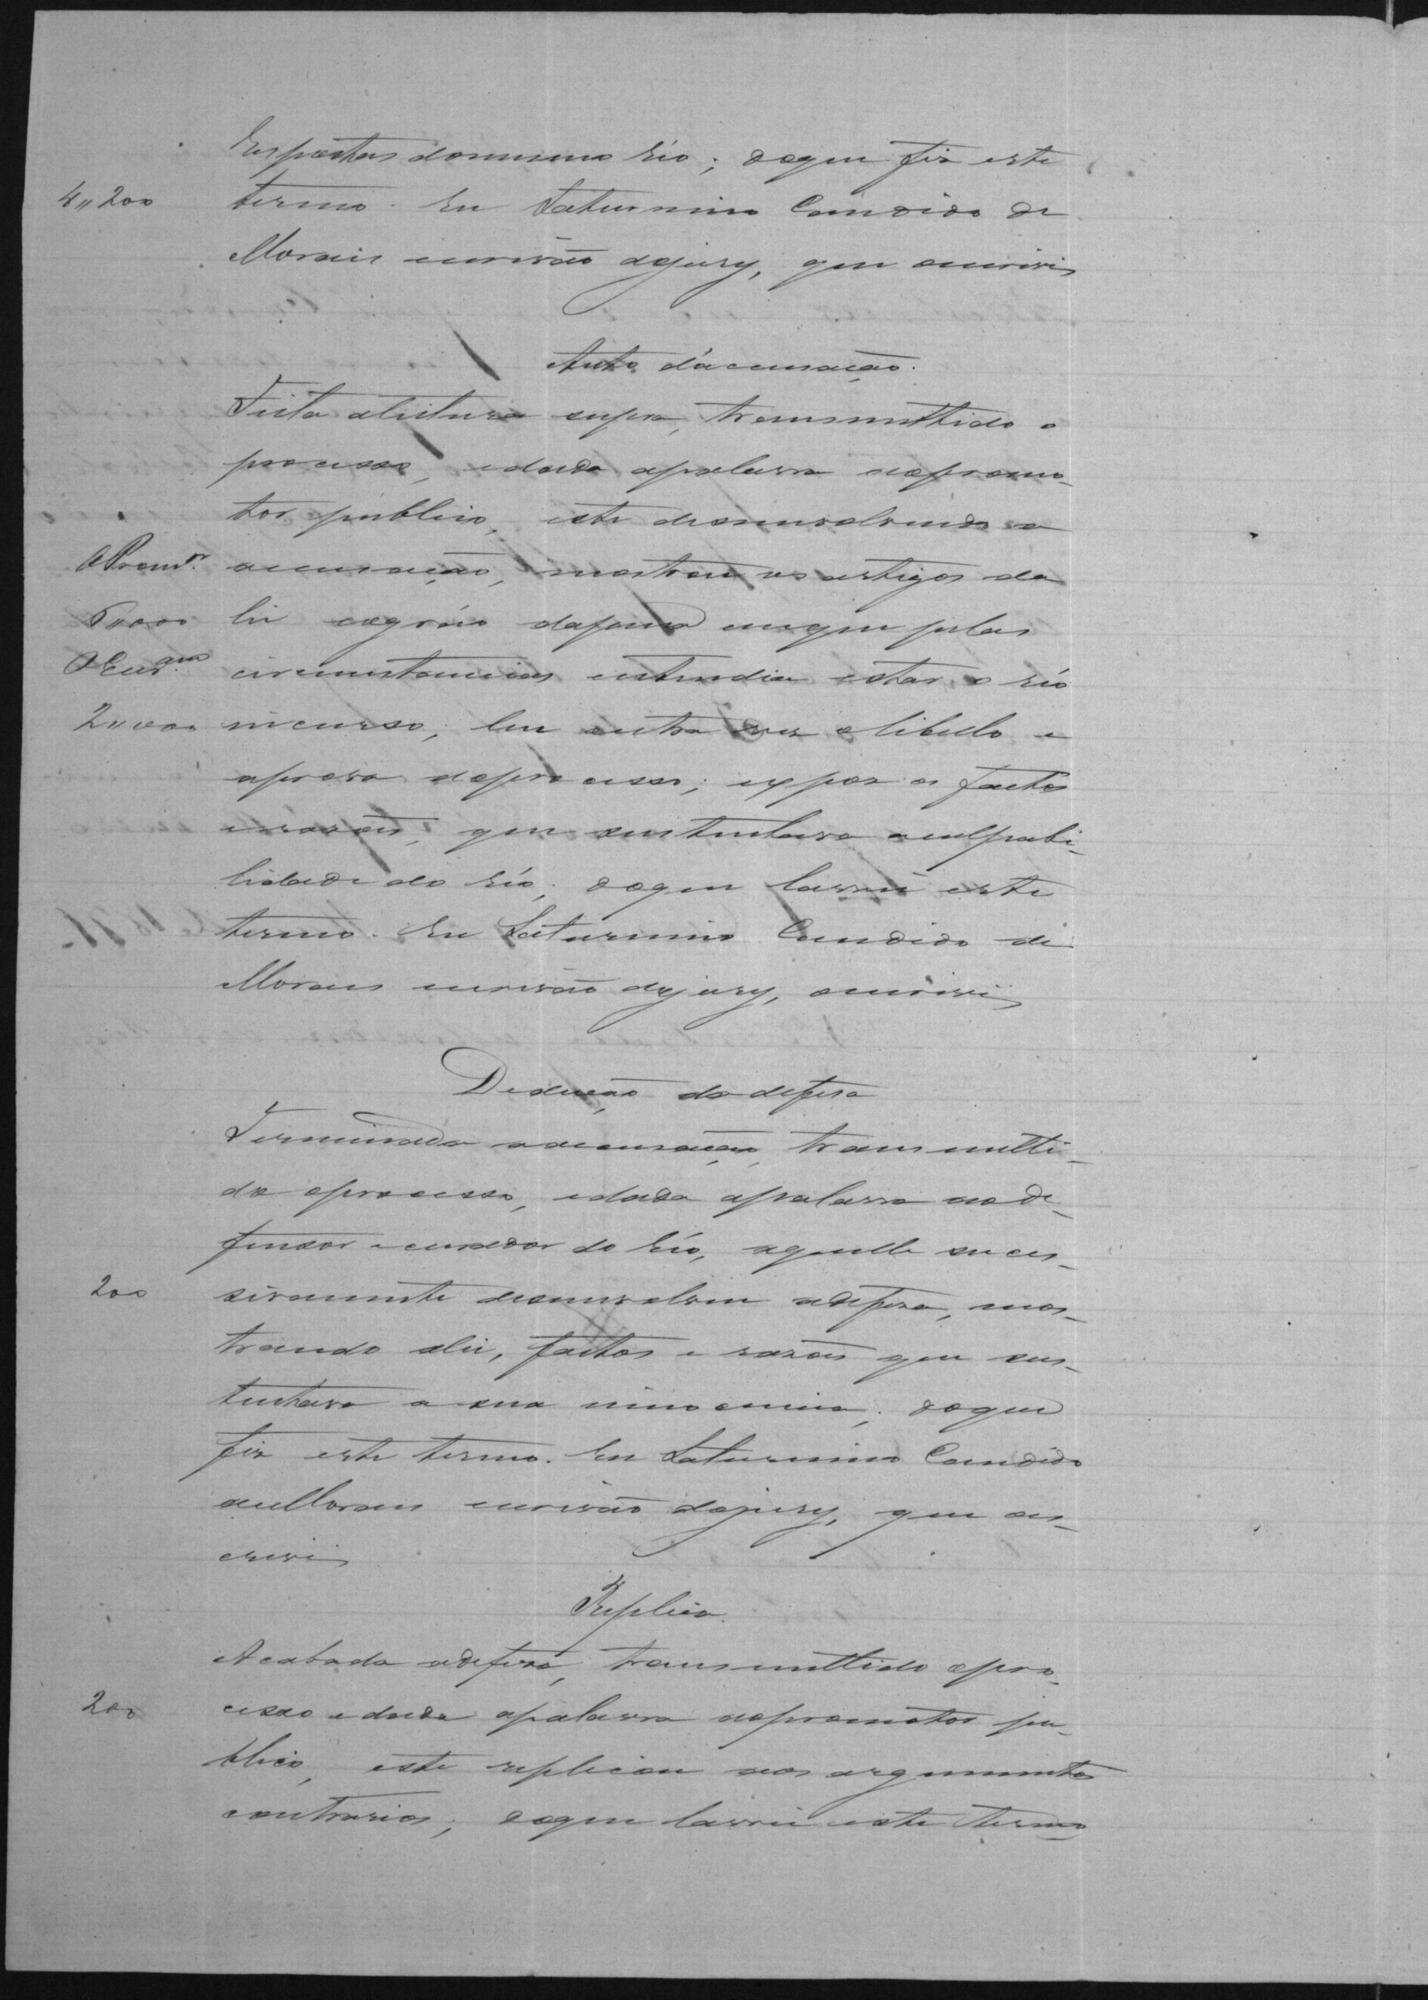 Respostas do mesmo réo; do que fiz este
4,,200 termo. Eu Saturnino Candido de
Morais escrivão do jury, que escrevi
Auto d'accusação.
Feita a leitura supra, transmittido o
processo, e dada a palavra ao promo-
tor publico, este desenvolvendo a
accusação, mostrou os artigos da
lei e o gráo da pena em que pelas
circumstancias entendia estar o réo
2,,000 incurso; leu outra vez o libello e
as provas do processo; expoz os factos
e rasões, que sustentava a culpabi-
lidade do réo; do que lavrei este
termo. Eu Saturnino Candido de
Moraes escrivão do jury, escrevi
Deducção da defesa
Terminada a accusação, transmitti-
do o processo, e dada a palavra ao de-
fensor e curador do réo, aquelle succes-
200 sivamente desenvolveu a defesa, mos-
trando a lei, factos e rasões que sus-
tentava a sua innocencia; do que
fiz este termo. Eu Saturnino Candido
de Moraes escrivão do jury, que es-
crevi
Replica.
Acabada a defesa, transmittido o pro-
200 cesso e dada a palavra ao promotor pu-
blico, este replicou aos argumentos
contrarios; do que lavrei este termo